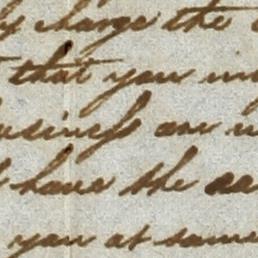 charge the
that you
business are
have the
you at same